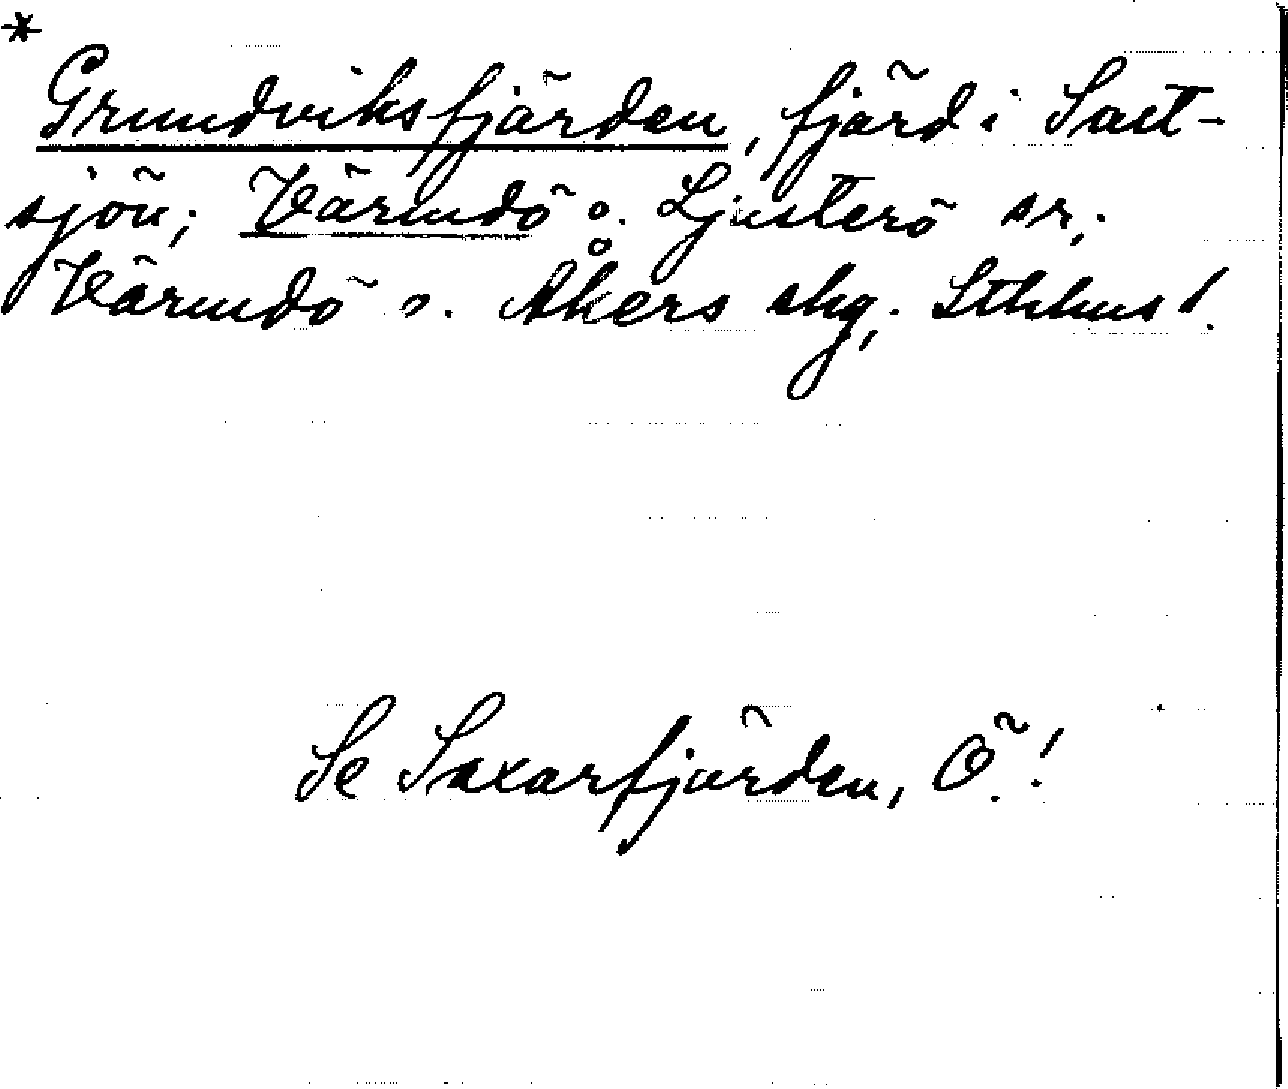 *
Grundviksfjärden, fjärd i Salt-
sjön; Värmdö o. Ljusterö sr,
Värmdö o. Åkers skg, Sthlms l.
Se Saxarfjärden, Ö.!